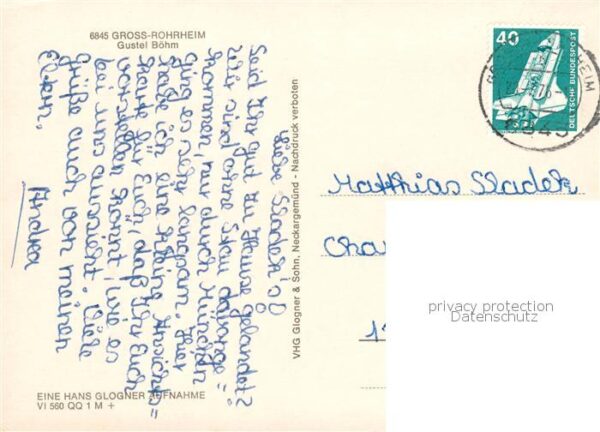 6845 GROSS-ROHRHEIM
Gustel Böhm
Liebe Sladek's!
Seid Ihr gut zu Hause gelandet?
Wir sind ohne Stau daheruge=
kommen, nur durch München
ging es sehr langsam. Hier
habe ich eine kleine Ansichts=
karte für Euch, daß Ihr Euch
vorstellen könnt, wie es
bei uns aussieht. Viele
Grüße auch von meinen
Eltern.
Andrea
EINE HANS GLOGNER AUFNAHME
VI 560 QQ 1 M +
VHG Glogner & Sohn, Neckargemünd - Nachdruck verboten
40
DEUTSCHE BUNDESPOST
6843
Matthias Sladek
Cha
1
privacy protection
Datenschutz